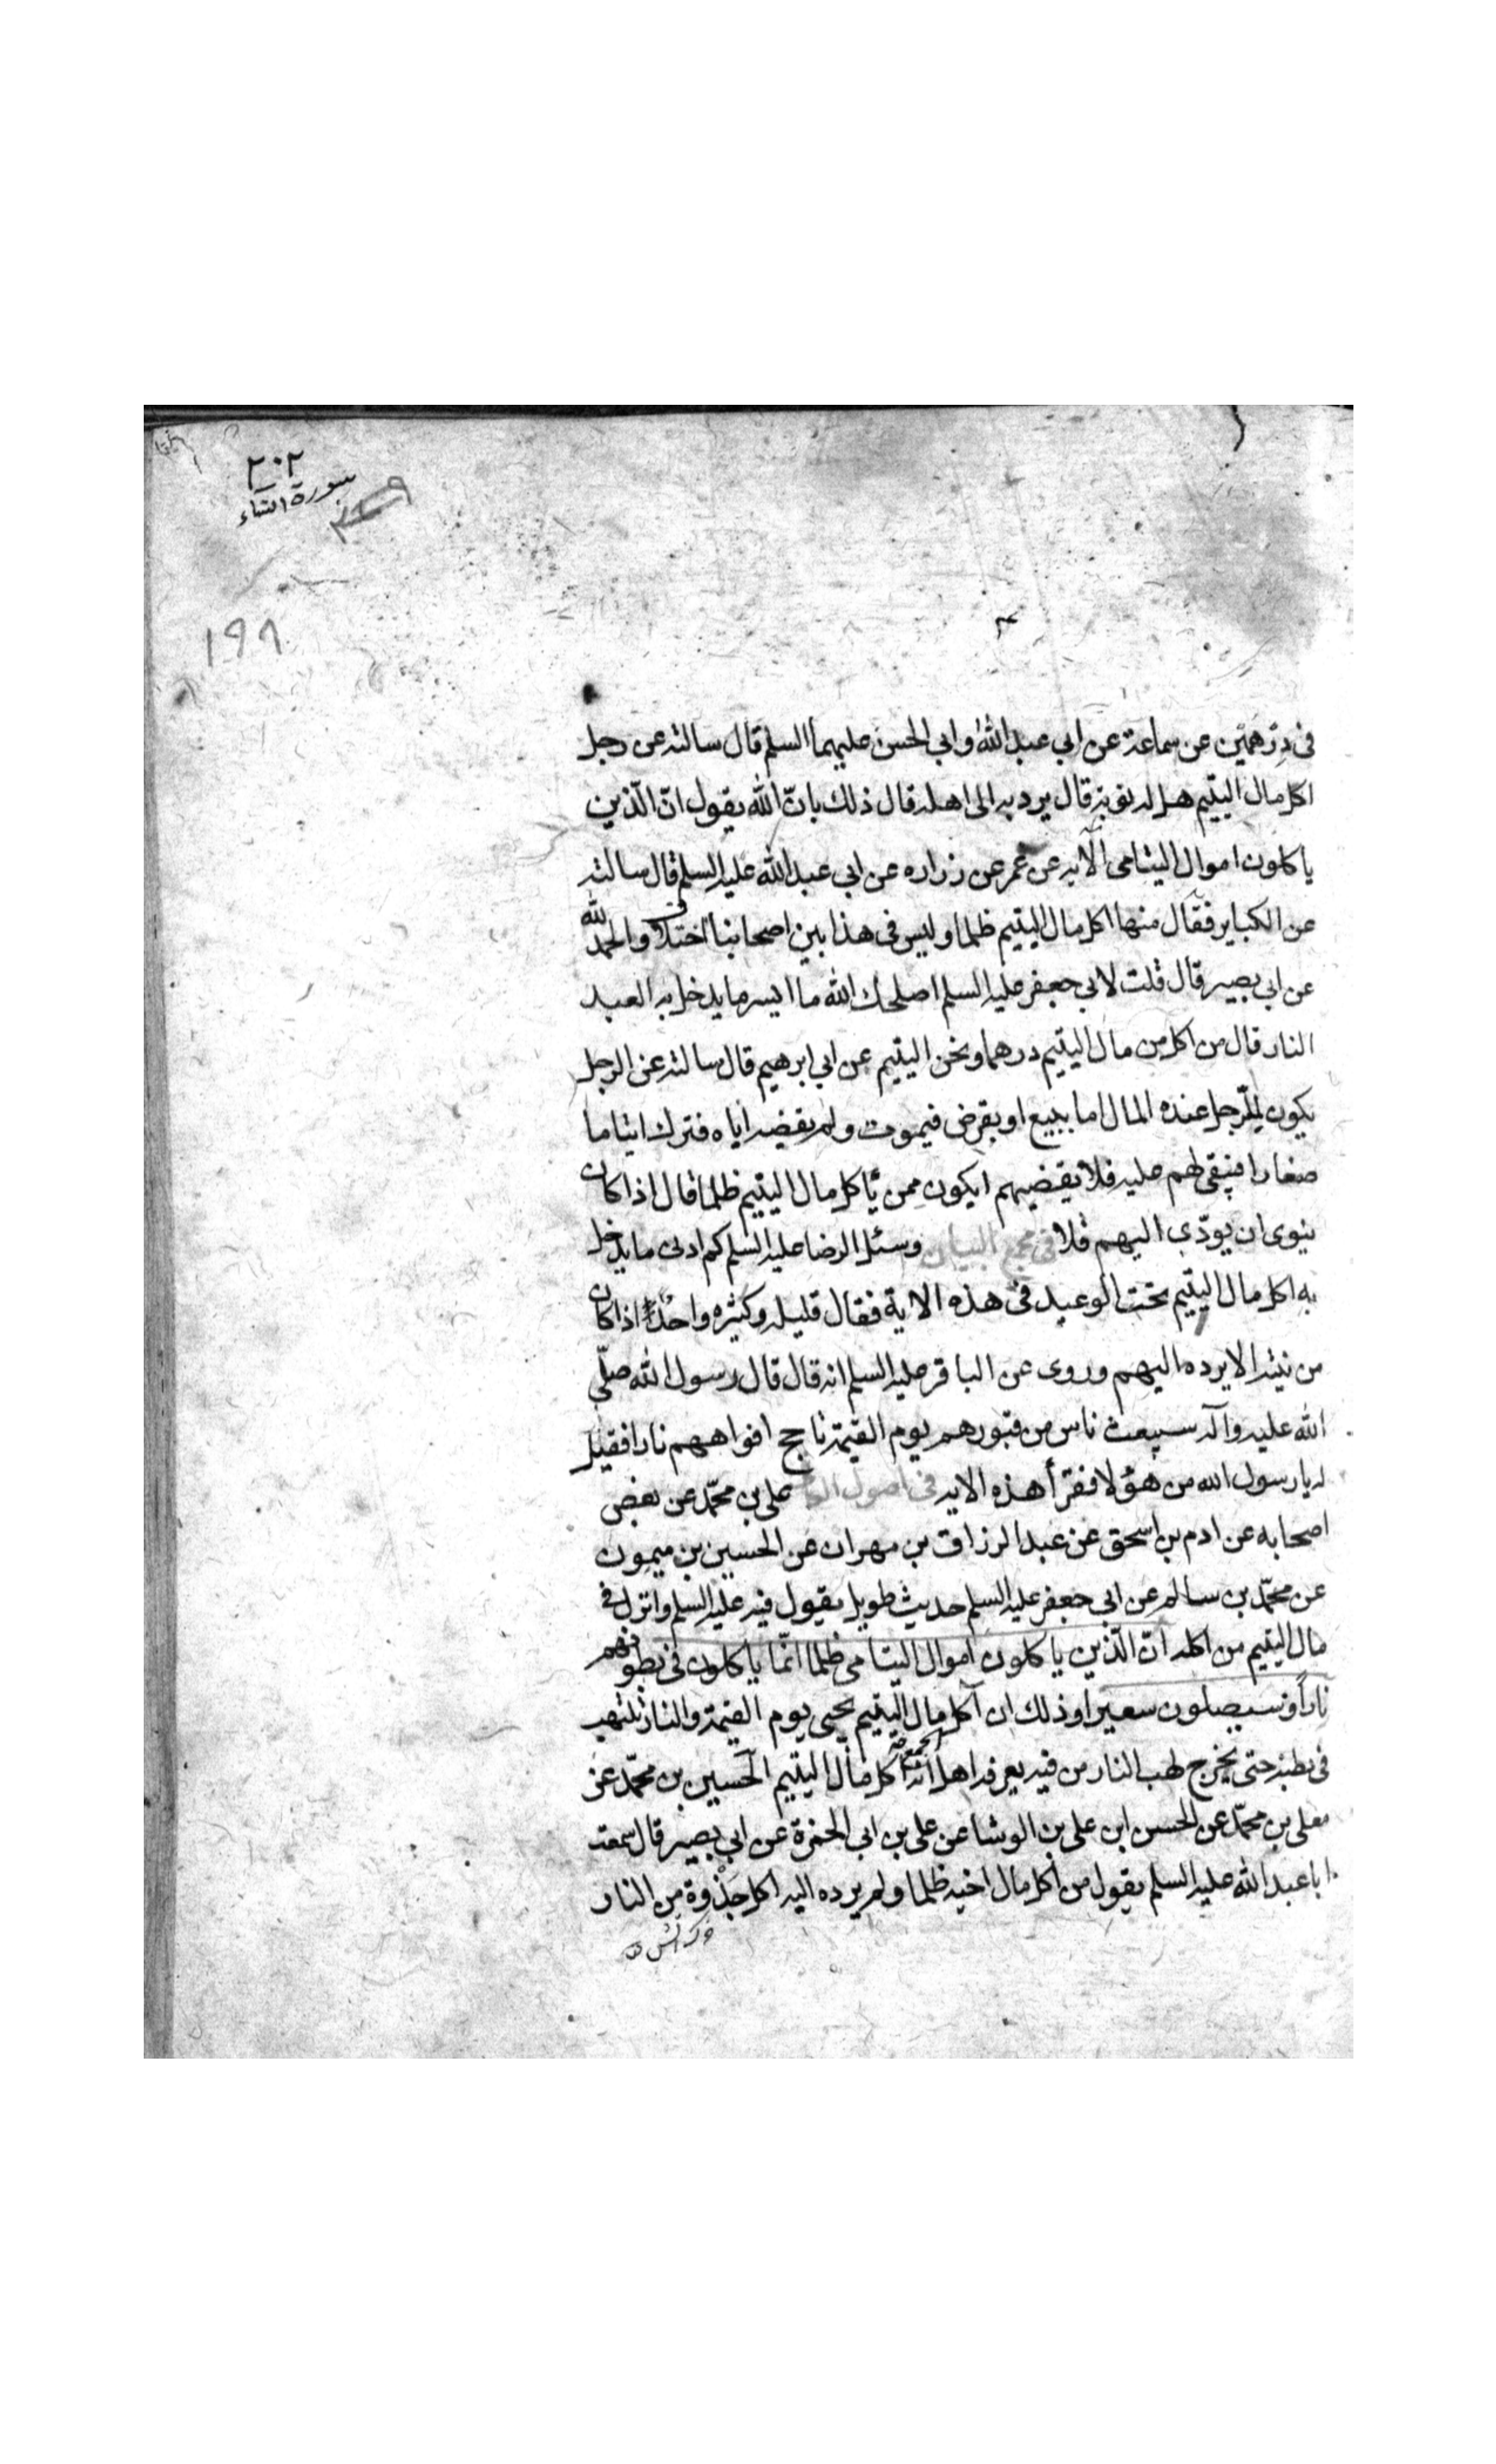 ٢٠٢
سورة النساء
١٩٩
فى درهمين عن سماعة عن ابي عبد الله وابي الحسن عليهما السلم قال سالته عن رجل
اكل مال اليتيم هل له توبة قال يرد به الى اهله قال ذلك بانّ الله يقول انّ الّذين
ياكلون اموال اليتامى الآية عن عمر عن زراره عن ابي عبد الله عليه السلم قال سالته
عن الكباير فقال منها اكل مال اليتيم ظلما وليس فى هذا بين اصحابنا اختلاف والحمد لله
عن ابي بصير قال قلت لابي جعفر عليه السلم اصلحك الله ما ايسر ما يدخل به العبد
النار قال من اكل من مال اليتيم درهما ونحن اليتيم عن ابي ابرهيم قال سالته عن الرجل
يكون للرّجل عنده المال اما ببيع او بقرض فيموت ولم يقضه اياه فترك ايتاما
صغارا فيبقى لهم عليه فلا يقضيهم ايكون ممن ياكل مال اليتيم ظلما قال اذا كان
ينوى ان يودّى اليهم فلا فى مجمع البيان وسئل الرضا عليه السلم كم ادنى ما يدخل
به اكل مال اليتيم تحت الوعيد فى هذه الاية فقال قليله وكثيره واحد اذا كان
من نيته الا يرده اليهم وروى عن الباقر عليه السلم انه قال قال رسول الله صلّى
الله عليه وآله سيبعث ناس من قبورهم يوم القيمة تاجج افواههم نارا فقيل
له يا رسول الله من هؤلا فقرأ هذه الاية فى اصول الكافى على بن محمّد عن بعض
اصحابه عن ادم بن اسحق عن عبد الرزاق بن مهران عن الحسين بن ميمون
عن محمّد بن سالم عن ابي جعفر عليه السلم حديث طويل يقول فيه عليه السلم وانزل فى
مال اليتيم من اكله انّ الّذين ياكلون اموال اليتامى ظلما انّما ياكلون فى بطونهم
ناراً وسيصلون سعيرا وذلك ان آكل مال اليتيم يجيى يوم القيمة والنار تلتهب
فى بطنه حتى يخرج لهب النار من فيه يعرفه اهل الجمع انه آكل مال اليتيم الحسين بن محمّد عن
معلى بن محمّد عن الحسن ابن على بن الوشا عن على بن ابي الحمزة عن ابي بصير قال سمعت
ابا عبد الله عليه السلم يقول من اكل مال اخيه ظلما ولم يرده اليه اكل جذوة من النار